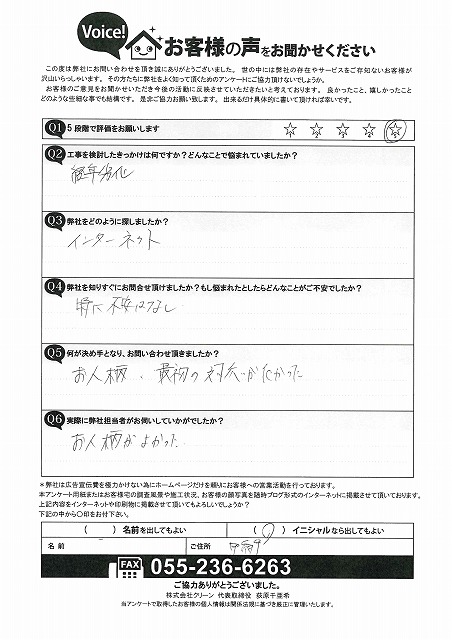 Voice! お客様の声をお聞かせください
この度は弊社にお問い合わせを頂き誠にありがとうございました。世の中には弊社の存在やサービスをご存知ないお客様が
沢山いらっしゃいます。その方たちに弊社をよく知って頂くためのアンケートにご協力頂けないでしょうか。
お客様のご意見をお聞かせいただき今後の活動に反映させていただきたいと考えております。良かったこと、嬉しかったこと
どのような些細な事でも結構です。是非ご協力お願い致します。出来るだけ具体的に書いて頂ければ幸いです。
Q1 5段階で評価をお願いします ☆ ☆ ☆ ☆ ☆
Q2 工事を検討したきっかけは何ですか？どんなことで悩まれていましたか？
経年劣化
Q3 弊社をどのように探しましたか？
インターネット
Q4 弊社を知りすぐにお問合せ頂けましたか？もし悩まれたとしたらどんなことがご不安でしたか？
特に不安はなし
Q5 何が決め手となり、お問い合わせ頂きましたか？
お人柄、最初の対応がよかった
Q6 実際に弊社担当者がお伺いしていかがでしたか？
お人柄がよかった
＊弊社は広告宣伝費を極力かけない為にホームページだけを頼りにお客様への営業活動を行っております。
本アンケート用紙またはお客様宅の調査風景や施工状況、お客様の顔写真を随時ブログ形式のインターネットに掲載させて頂いております。
上記内容をインターネットや印刷物に掲載させて頂いてもよろしいでしょうか？
下記の中から〇印をお付下さい。
（ ）名前を出してもよい （〇）イニシャルなら出してもよい
名前 ご住所 甲府市
FAX 055-236-6263
ご協力ありがとうございました。
株式会社クリーン 代表取締役 荻原千亜希
当アンケートで取得したお客様の個人情報は関係法規に基づき厳正に管理いたします。